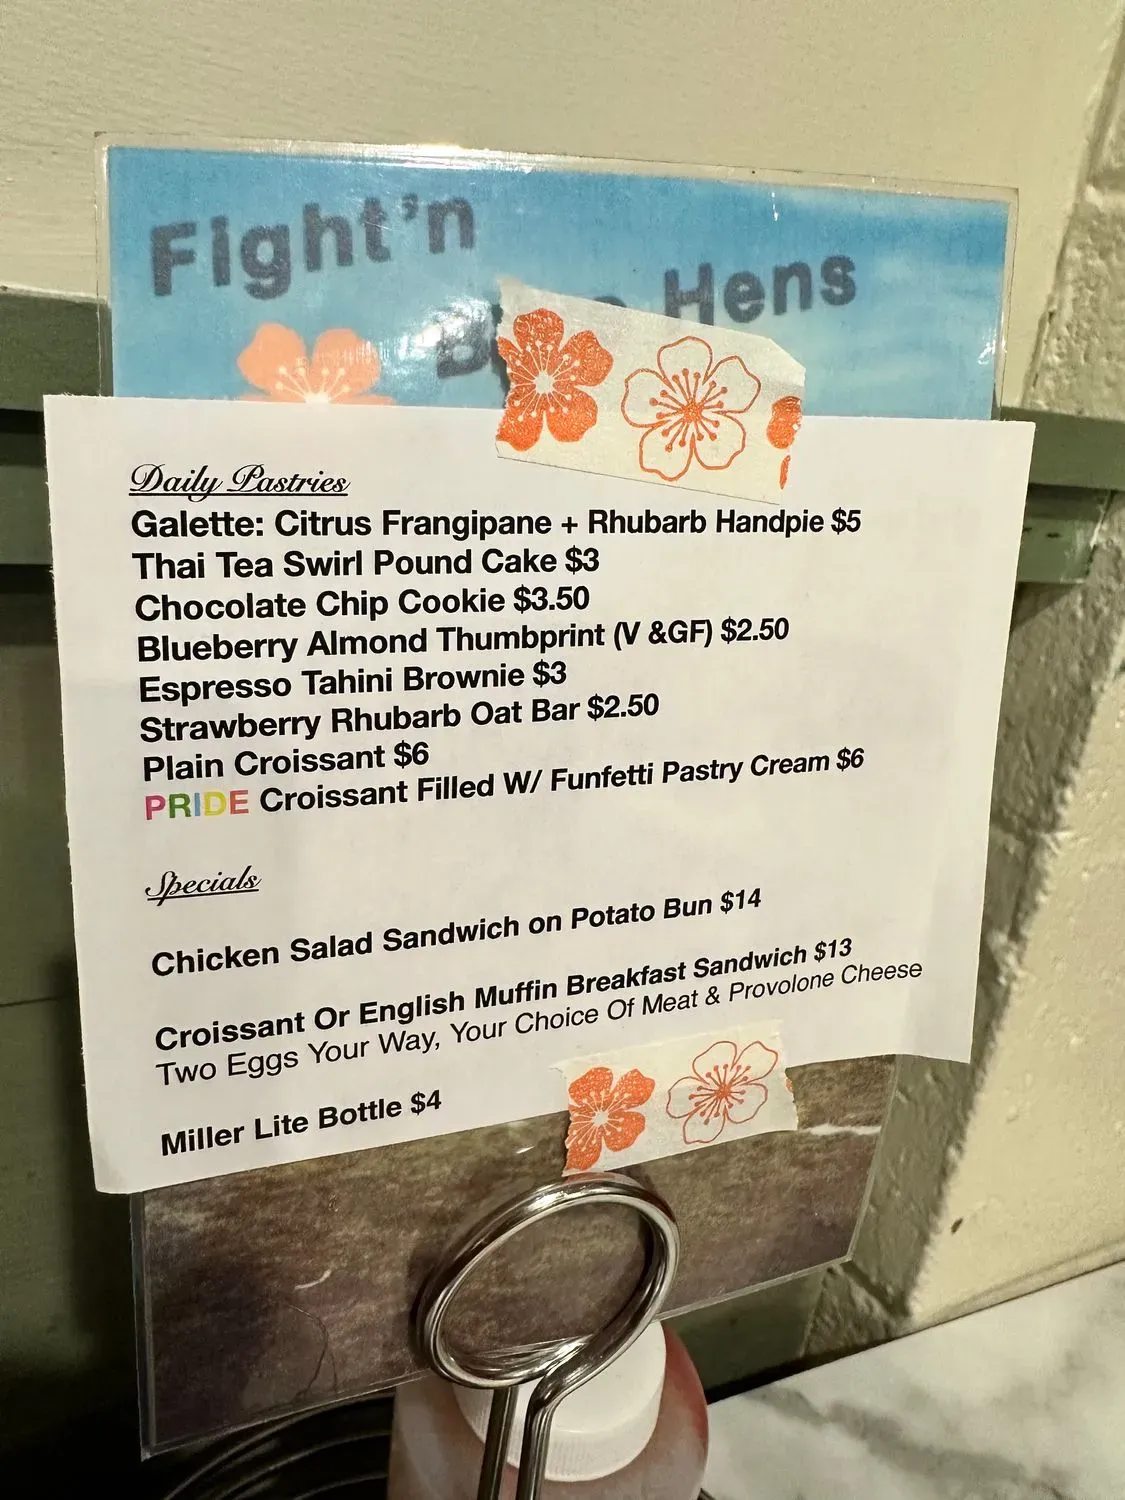 Fight'n
Hens
Daily Pastries
Galette: Citrus Frangipane + Rhubarb Handpie $5
Thai Tea Swirl Pound Cake $3
Chocolate Chip Cookie $3.50
Blueberry Almond Thumbprint (V &GF) $2.50
Espresso Tahini Brownie $3
Strawberry Rhubarb Oat Bar $2.50
Plain Croissant $6
PRIDE Croissant Filled W/ Funfetti Pastry Cream $6
Specials
Chicken Salad Sandwich on Potato Bun $14
Croissant Or English Muffin Breakfast Sandwich $13
Two Eggs Your Way, Your Choice Of Meat & Provolone Cheese
Miller Lite Bottle $4